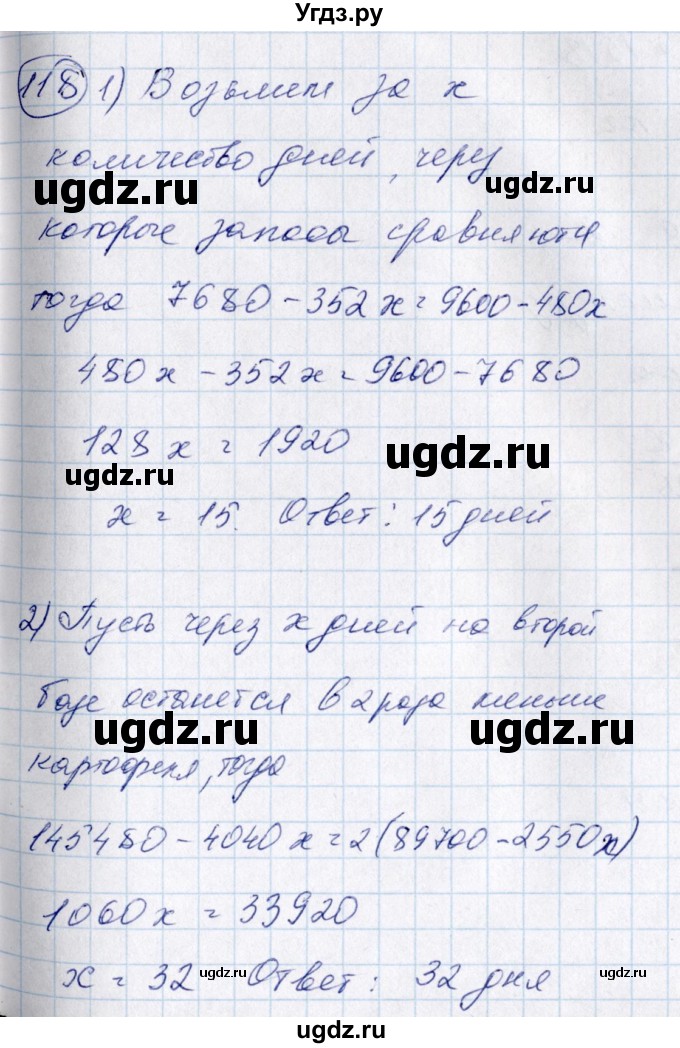 Угдз.ру
118 1) Возьмем за x
количество дней, через
ugdz.ru
которые запасы сравняются
тогда 7680-352x=9600-480x
480x-352x=9600-7680
128x=1920
ugdz.ru
ugdz.ru
x=15. Ответ: 15 дней
2) Пусть через x дней на второй
базе останется в 2 раза меньше
ugdz.ru
ugdz.ru
картофеля, тогда
145480-4040x=2(89700-2550x)
1060x=33920
x=32 Ответ: 32 дня
ugdz.ru
ugdz.ru
ugdz.ru